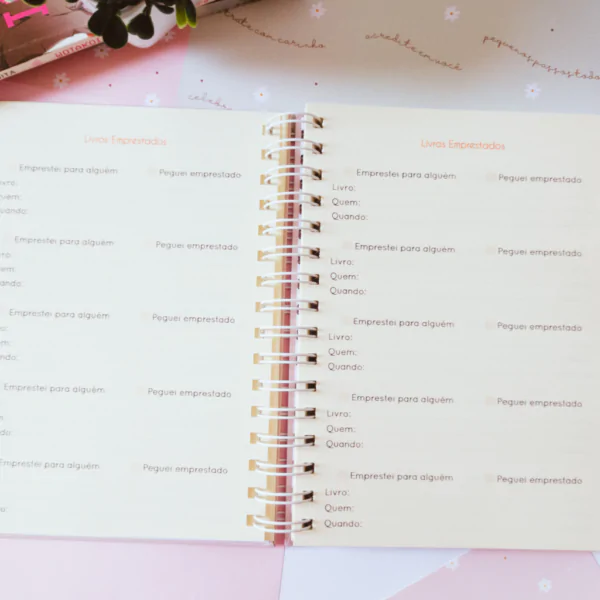 acredite em você
celebre
Livros Emprestados
Emprestei para alguém Peguei emprestado
Livro:
Quem:
Quando:
Emprestei para alguém Peguei emprestado
Emprestei para alguém Peguei emprestado
Emprestei para alguém Peguei emprestado
Emprestei para alguém Peguei emprestado
Livros Emprestados
Emprestei para alguém Peguei emprestado
Livro:
Quem:
Quando:
Emprestei para alguém Peguei emprestado
Livro:
Quem:
Quando:
Emprestei para alguém Peguei emprestado
Livro:
Quem:
Quando:
Emprestei para alguém Peguei emprestado
Livro:
Quem:
Quando:
Emprestei para alguém Peguei emprestado
Livro:
Quem:
Quando: